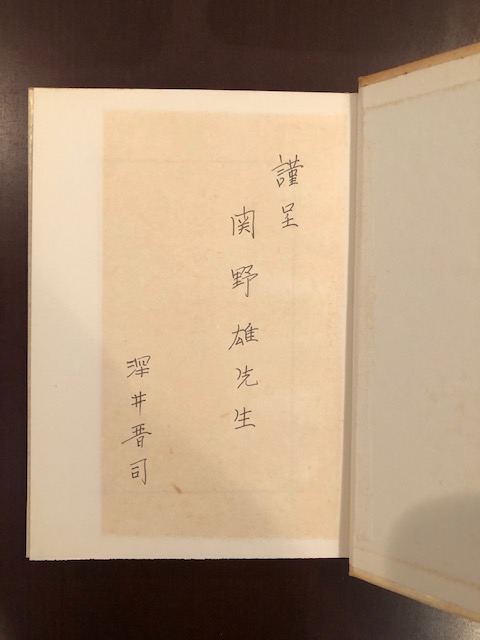 謹呈
関野雄先生
深井晋司